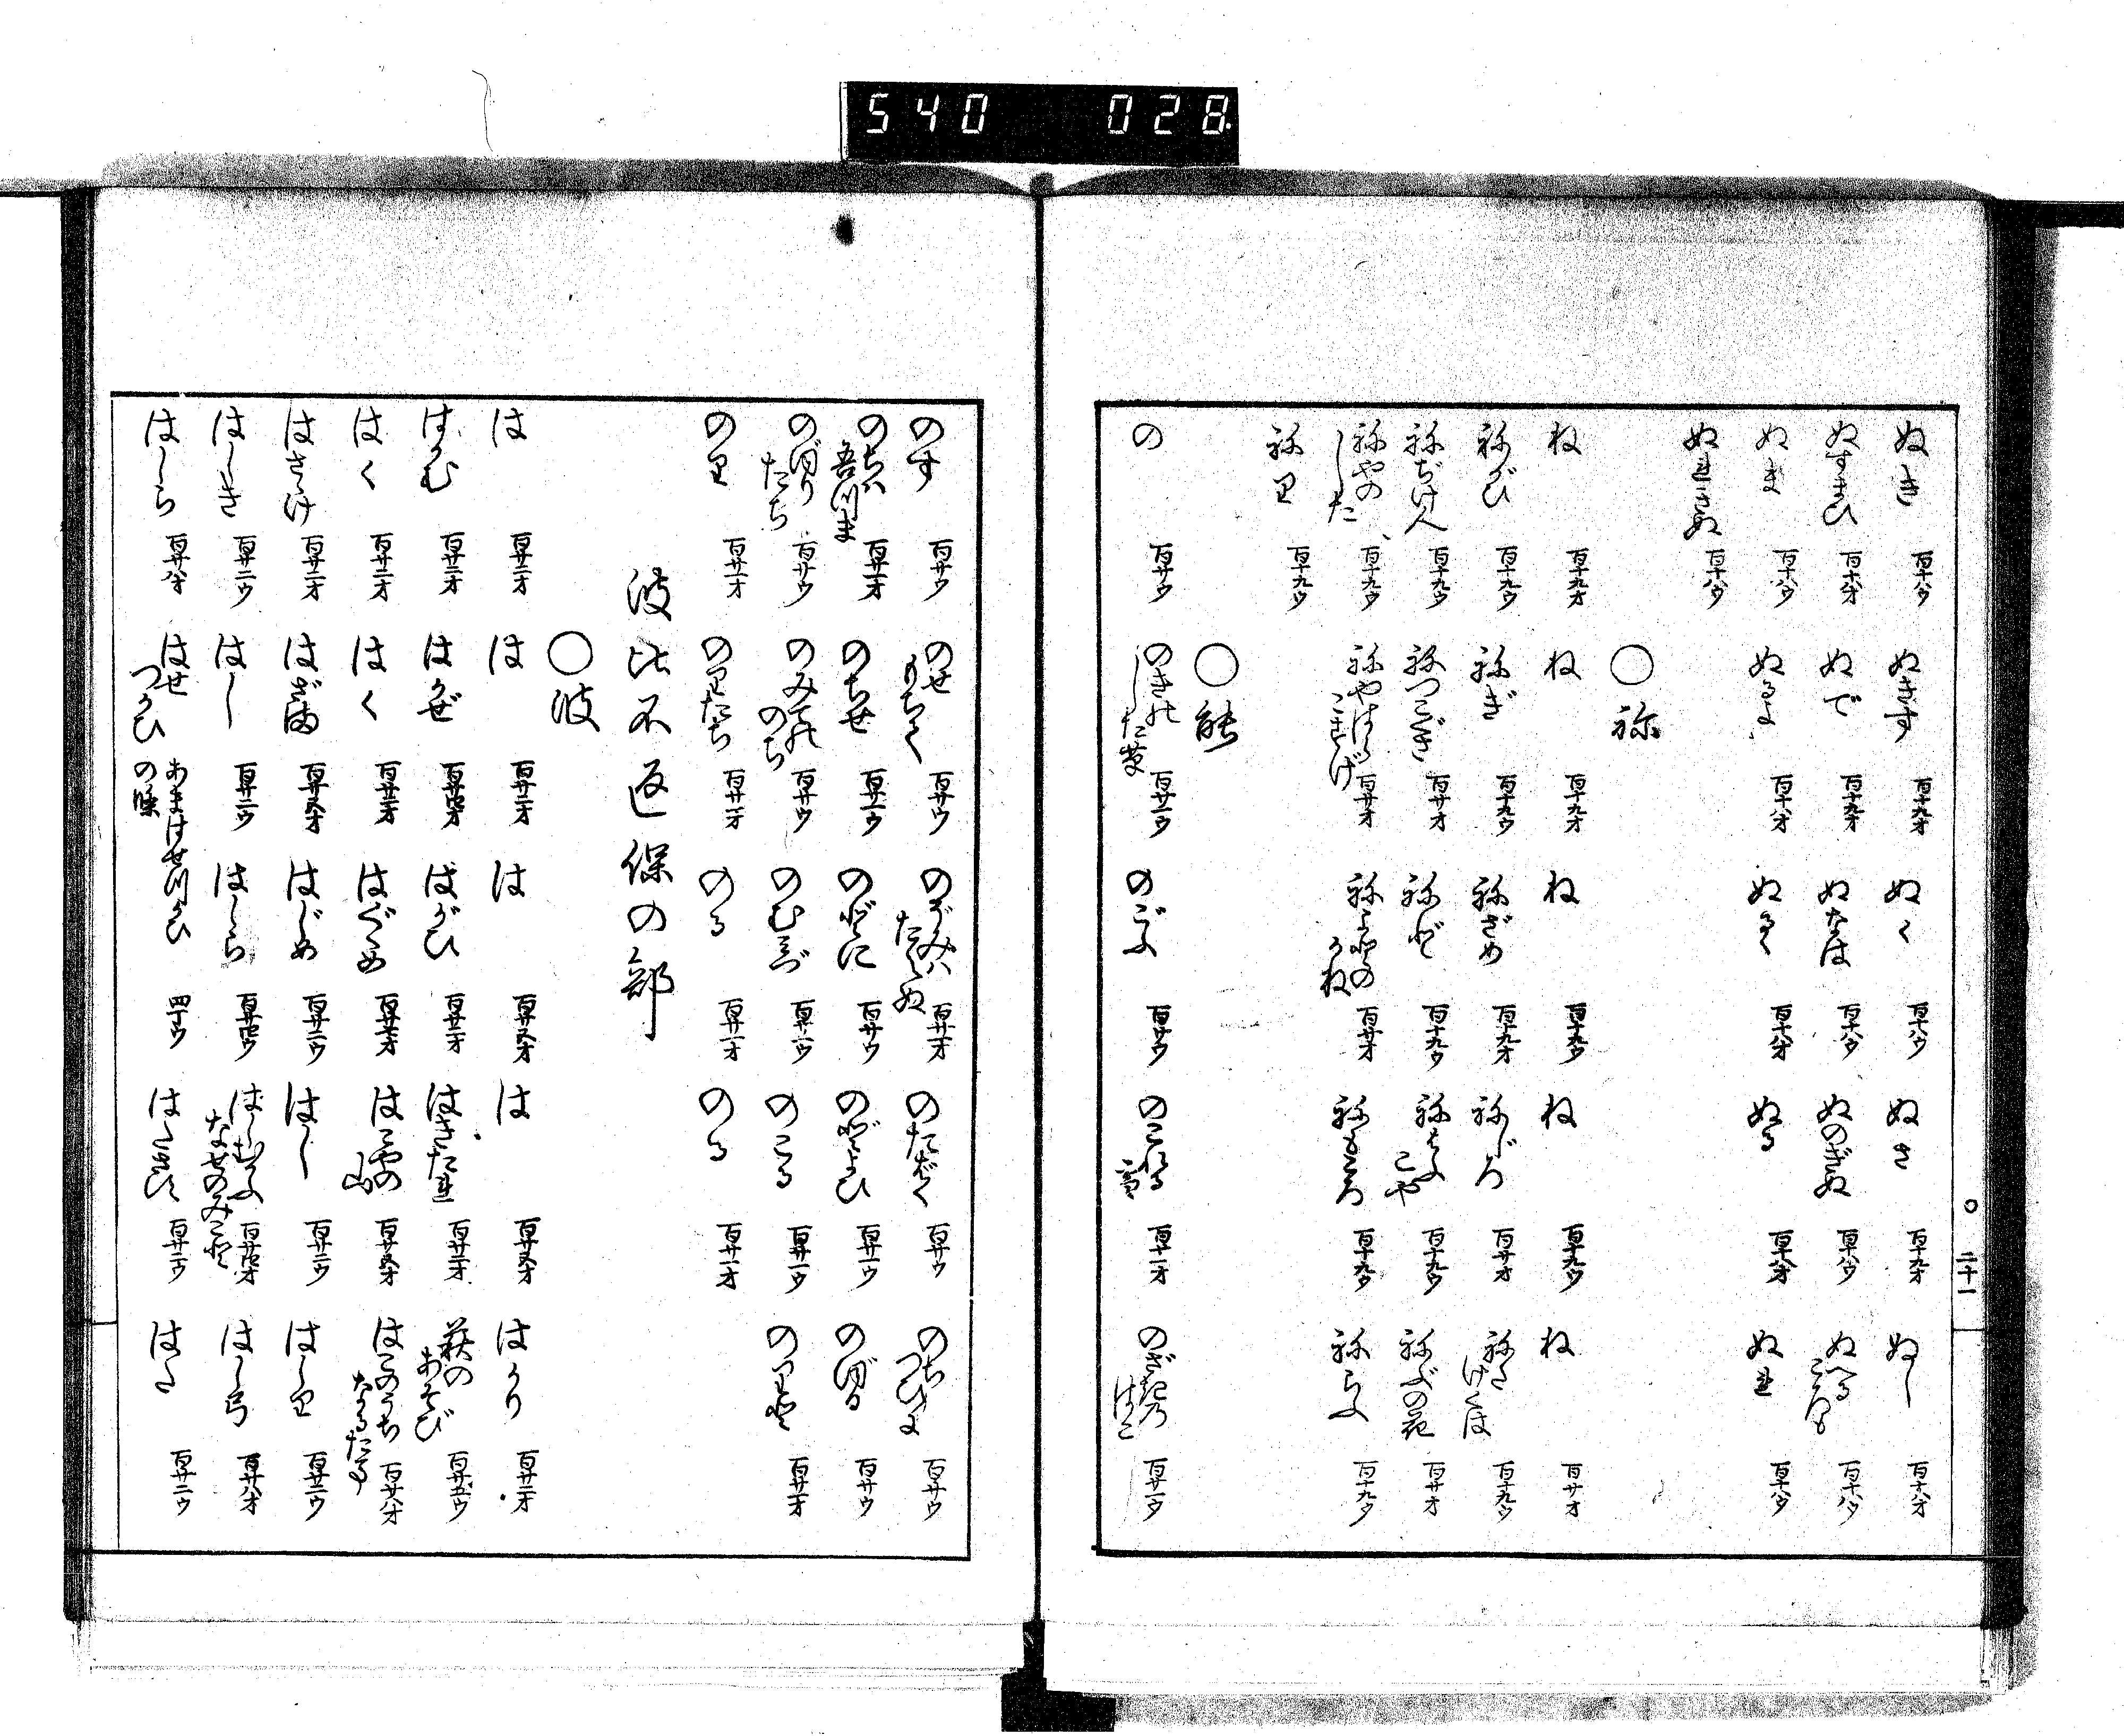 540 028
二十一
ぬき 百十八ウ ぬきす 百十九オ ぬく 百十八ウ ぬさ 百十九オ ぬし 百十八オ
ぬすまひ 百十八オ ぬで 百十九オ ぬなは 百十八ウ ぬのぎぬ 百十八ウ ぬへる 百十八ウ
ぬま 百十八ウ ぬるよ 百十八オ ぬるく 百十八オ ぬる 百十八オ ぬれ 百十八ウ
ぬれきぬ 百十八ウ
○祢
ね 百十九オ ね 百十九オ ね 百十九ウ ね 百十九ウ ね 百廿オ
祢がひ 百十九ウ 祢ぎ 百十九ウ 祢ざめ 百十九オ 祢じろ 百廿オ 百十九ウ
祢ぢけ人 百十九ウ 祢つこぎ 百廿オ 祢ど 百十九ウ 百十九ウ 祢ぶの花 百廿オ
祢やのした 百十九ウ 百廿オ 百廿オ 祢もころ 百十九ウ 祢らふ 百十九ウ
祢り 百十九ウ
○能
の 百廿ウ のきのした草 百廿一ウ のごふ 百廿ウ のこれる雪 百廿一オ のざきのはこ 百廿一ウ
のす 百廿ウ のせ 百廿ウ 百廿一オ のたばく 百廿ウ のちつひに 百廿ウ
のちハ吾つま 百廿一オ のちせ 百廿一ウ のどに 百廿ウ のどよひ 百廿一ウ のぼる 百廿ウ
のぼりたち 百廿ウ のみてののち 百廿ウ のむみづ 百廿一ウ のこる 百廿一ウ のりと 百廿一オ
のり 百廿一オ のりたち 百廿一オ のる 百廿一オ のる 百廿一オ
波比不返保の部
○波
は 百廿二オ は 百廿二オ は 百廿五オ は 百廿五オ はかり 百廿二オ
はかむ 百廿二オ はかぜ 百廿四オ はがひ 百廿二オ はきたれ 百廿二オ 萩のあそび 百廿五ウ
はく 百廿二オ はく 百廿二オ はぐくめ 百廿二オ はこやの山 百廿五オ はこのうちなるたま 百廿八オ
はさけ 百廿二オ はざま 百廿五オ はじめ 百廿二ウ はし 百廿二ウ はしり 百廿二ウ
はしき 百廿二ウ はし 百廿二ウ はしら 百廿四ウ はしむかふなせのみこと 百廿四オ はし弓 百廿八オ
はしら 百廿八オ はせつかひ あまはせつかひの條 四丁ウ 百廿二ウ はた 百廿二ウ